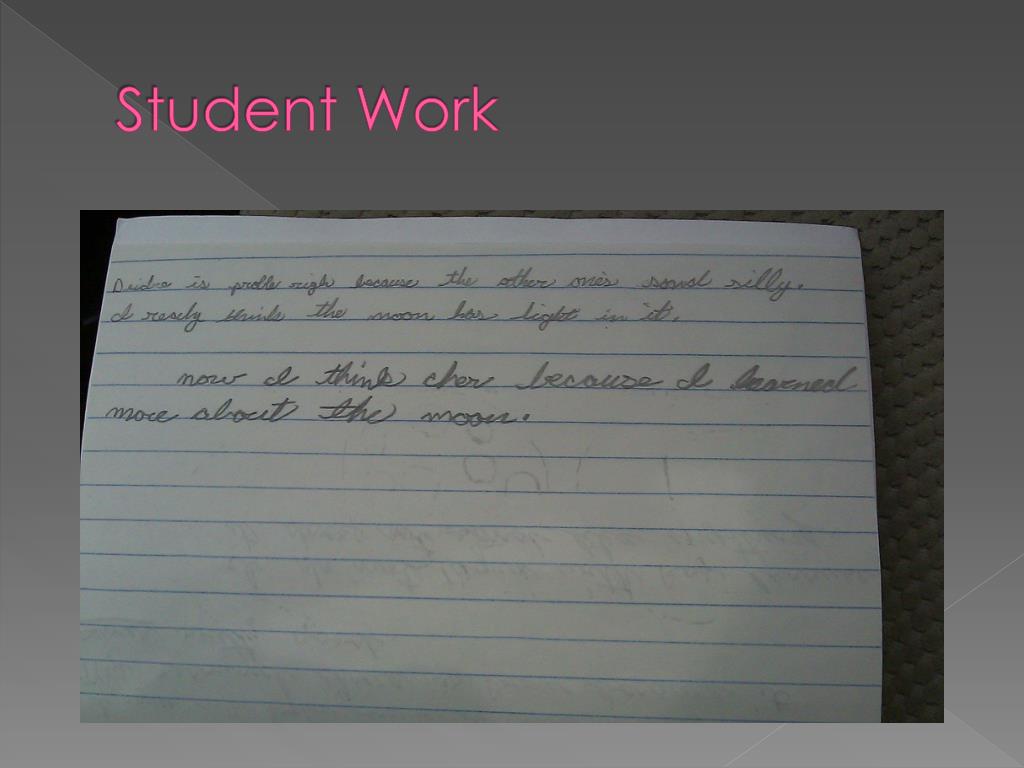 Student Work
Deidra is proble righ because the other one's sound silly.
I realy think the moon has light in it.
now I think cher because I learned
more about the moon.